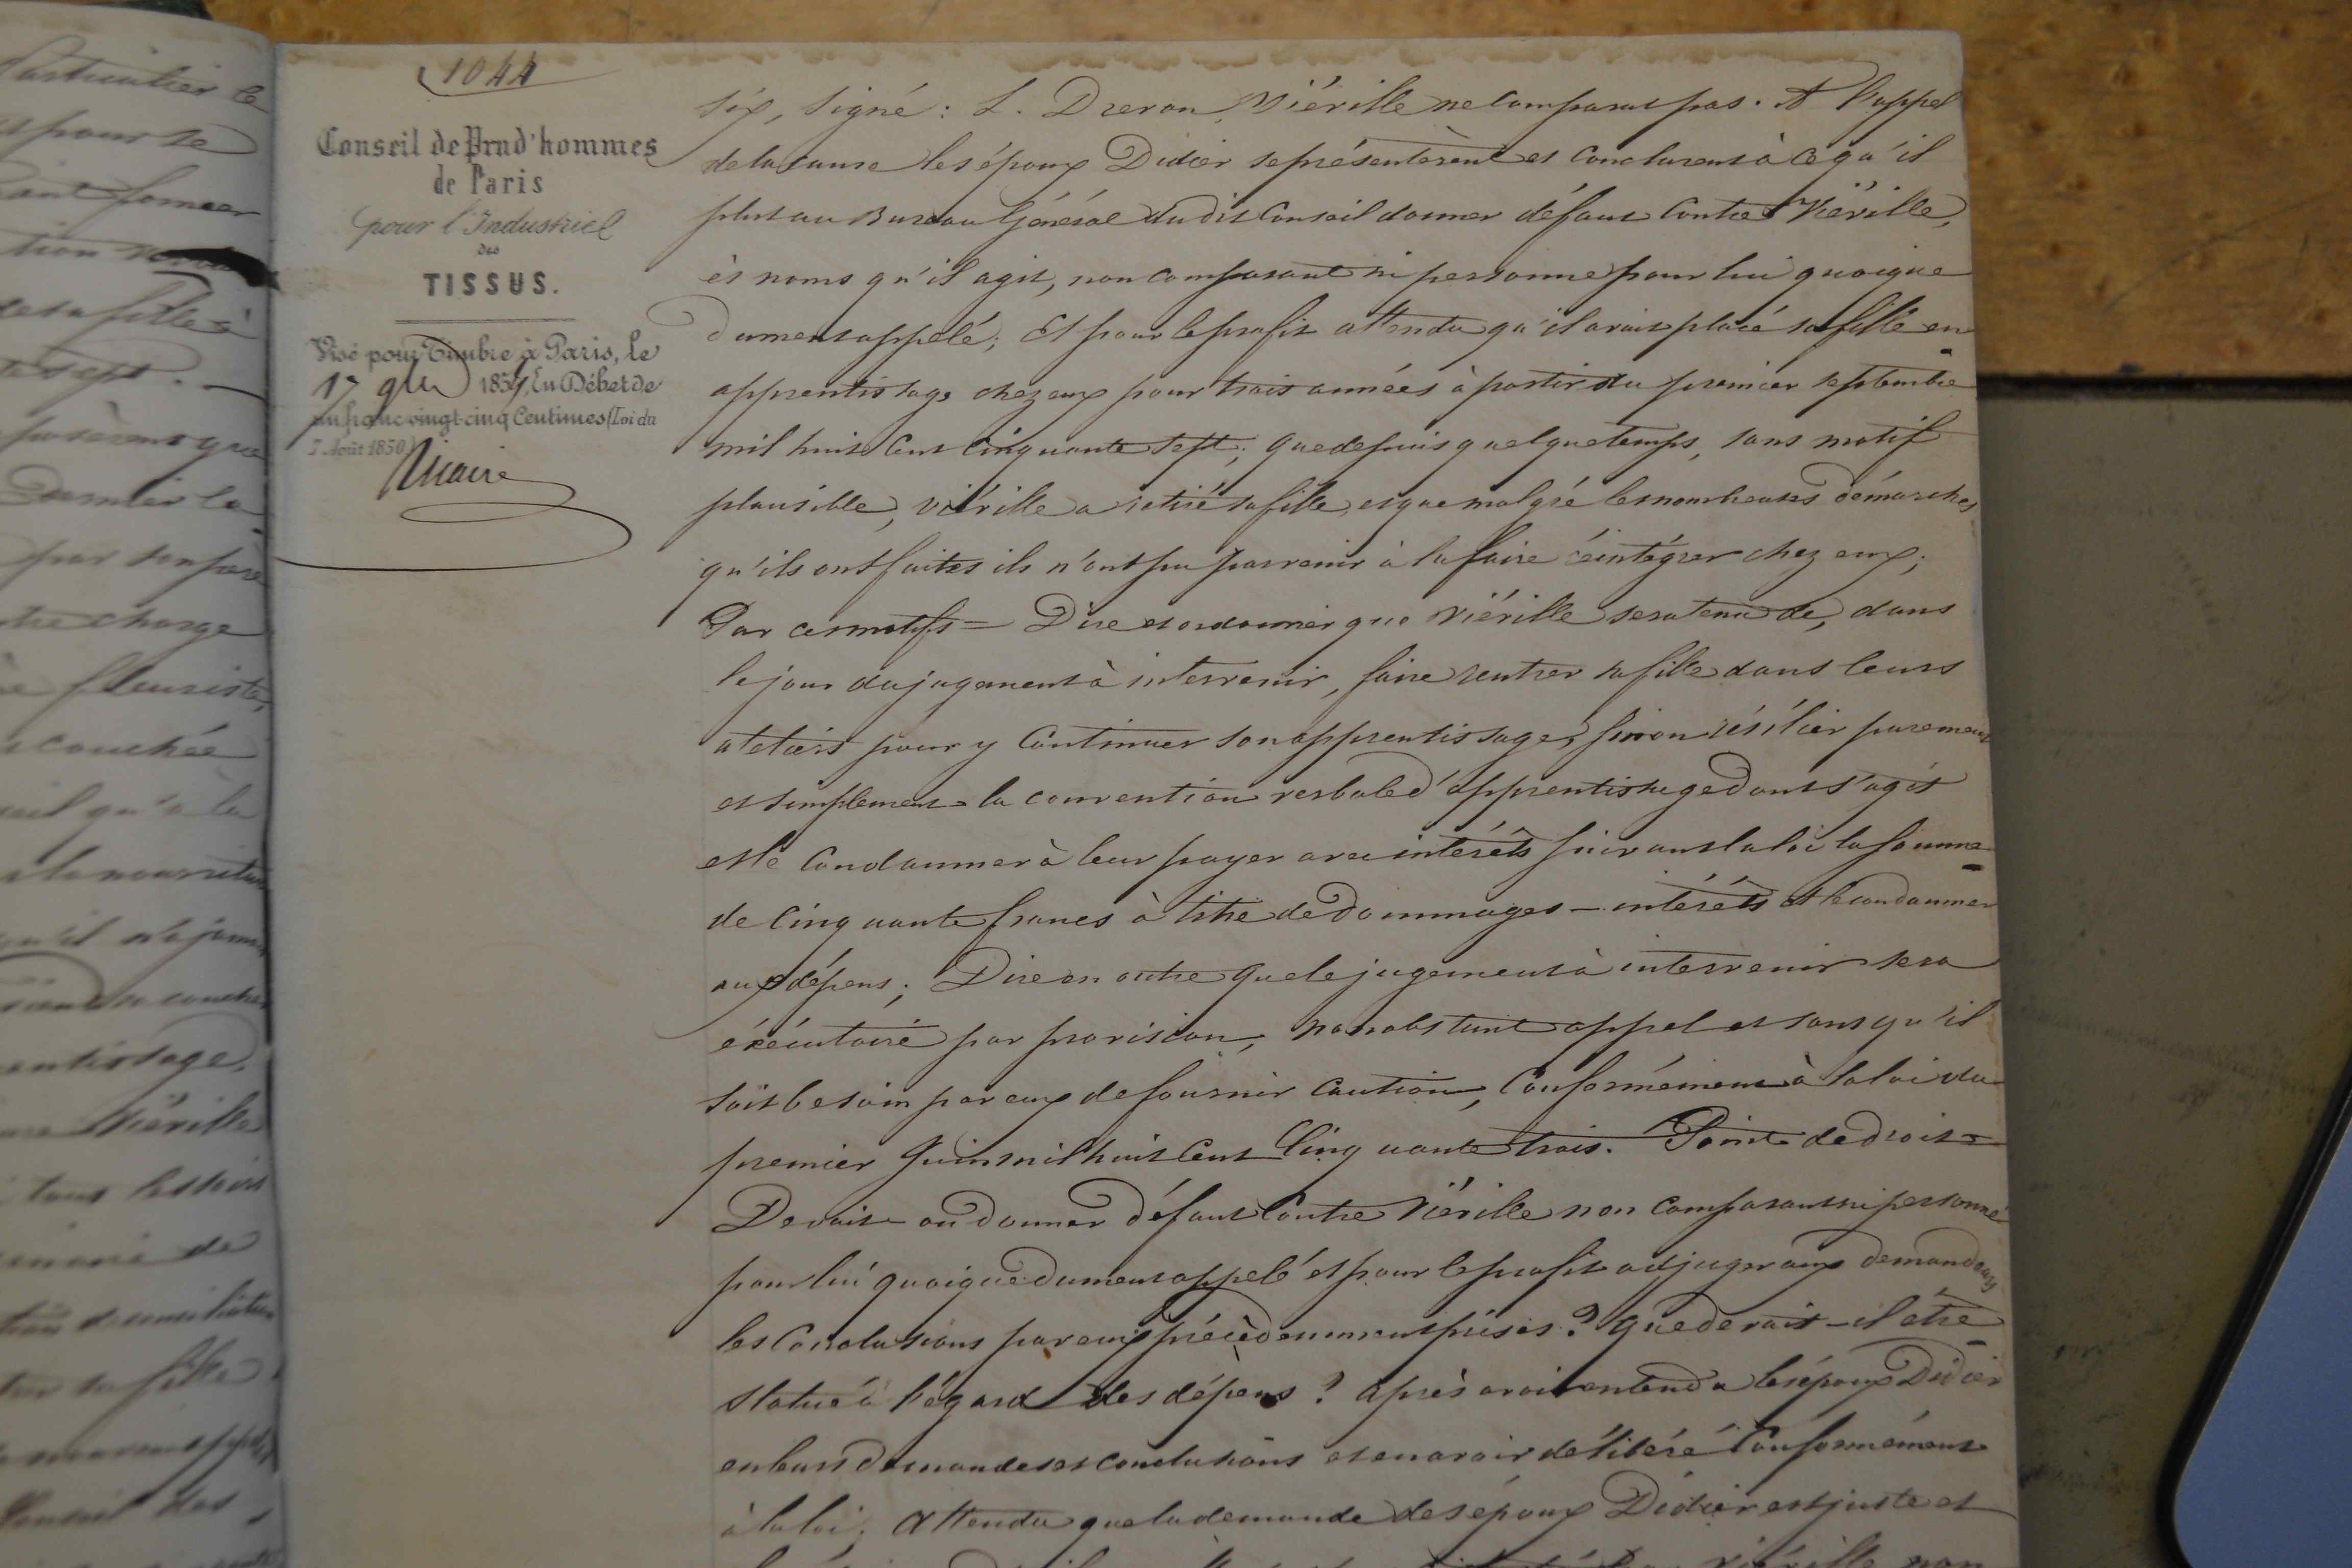 Particulier le
et pour se
tion
de sa fille à
posèrent que
Dernier la
par son père
charge
fleuriste,
accouchée
qu'à la
la nourriture
qu'il n'a jamais
apprentissage.
Viérille
tous les soirs
de
sa fille
Conseil des
1044
Conseil de Prud'hommes
de Paris
pour l'Industriel
des
TISSUS.
Visé pour Timbre à Paris, le
17 9bre 1857, En Débet de
un franc vingt-cinq Centimes (Loi du
7 Août 1850)
six, signé: L. Dreron, Viérille ne comparut pas. A l'appel
de la cause les époux Didier se présentèrent et conclurent à ce qu'il
plut au Bureau Général dudit Conseil donner défaut contre Viérille,
ès noms qu'il agit, non comparant ni personne pour lui quoique
dument appelé; Et pour le profit attendu qu'il avait placé sa fille en
apprentissage chez eux pour trois années à partir du premier septembre
mil huit cent cinquante sept; que depuis quelque temps, sans motif
plausible, Viérille a retiré sa fille, et que malgré les nombreuses démarches
qu'ils ont faites ils n'ont pu parvenir à la faire réintégrer chez eux;
Par ces motifs = Dire et ordonner que Viérille sera tenu de, dans
le jour du jugement à intervenir, faire rentrer sa fille dans leurs
ateliers pour y continuer son apprentissage, sinon résilier purement
et simplement la convention verbale d'apprentissage dont s'agit
et le condamner à leur payer avec intérêts suivant la loi la somme
de cinquante francs à titre de dommages-intérêts et le condamner
aux dépens; Dire en outre que le jugement à intervenir sera
éxécutoire par provision, nonobstant appel et sans qu'il
soit besoin par eux de fournir caution, conformément à la loi du
premier Juin mil huit cent cinquante trois. Point de droit =
Devait-on donner défaut contre Viérille non comparant ni personne
pour lui quoique dument appelé et pour le profit adjuger aux demandeurs
les conclusions par eux précèdemment prises? Que devait-il être
statué à l'égard des dépens? Après avoir entendu les époux Didier
en leurs demandes et conclusions et en avoir délibéré conformément
à la loi; Attendu que la demande des époux Didier est juste et
Viérille non